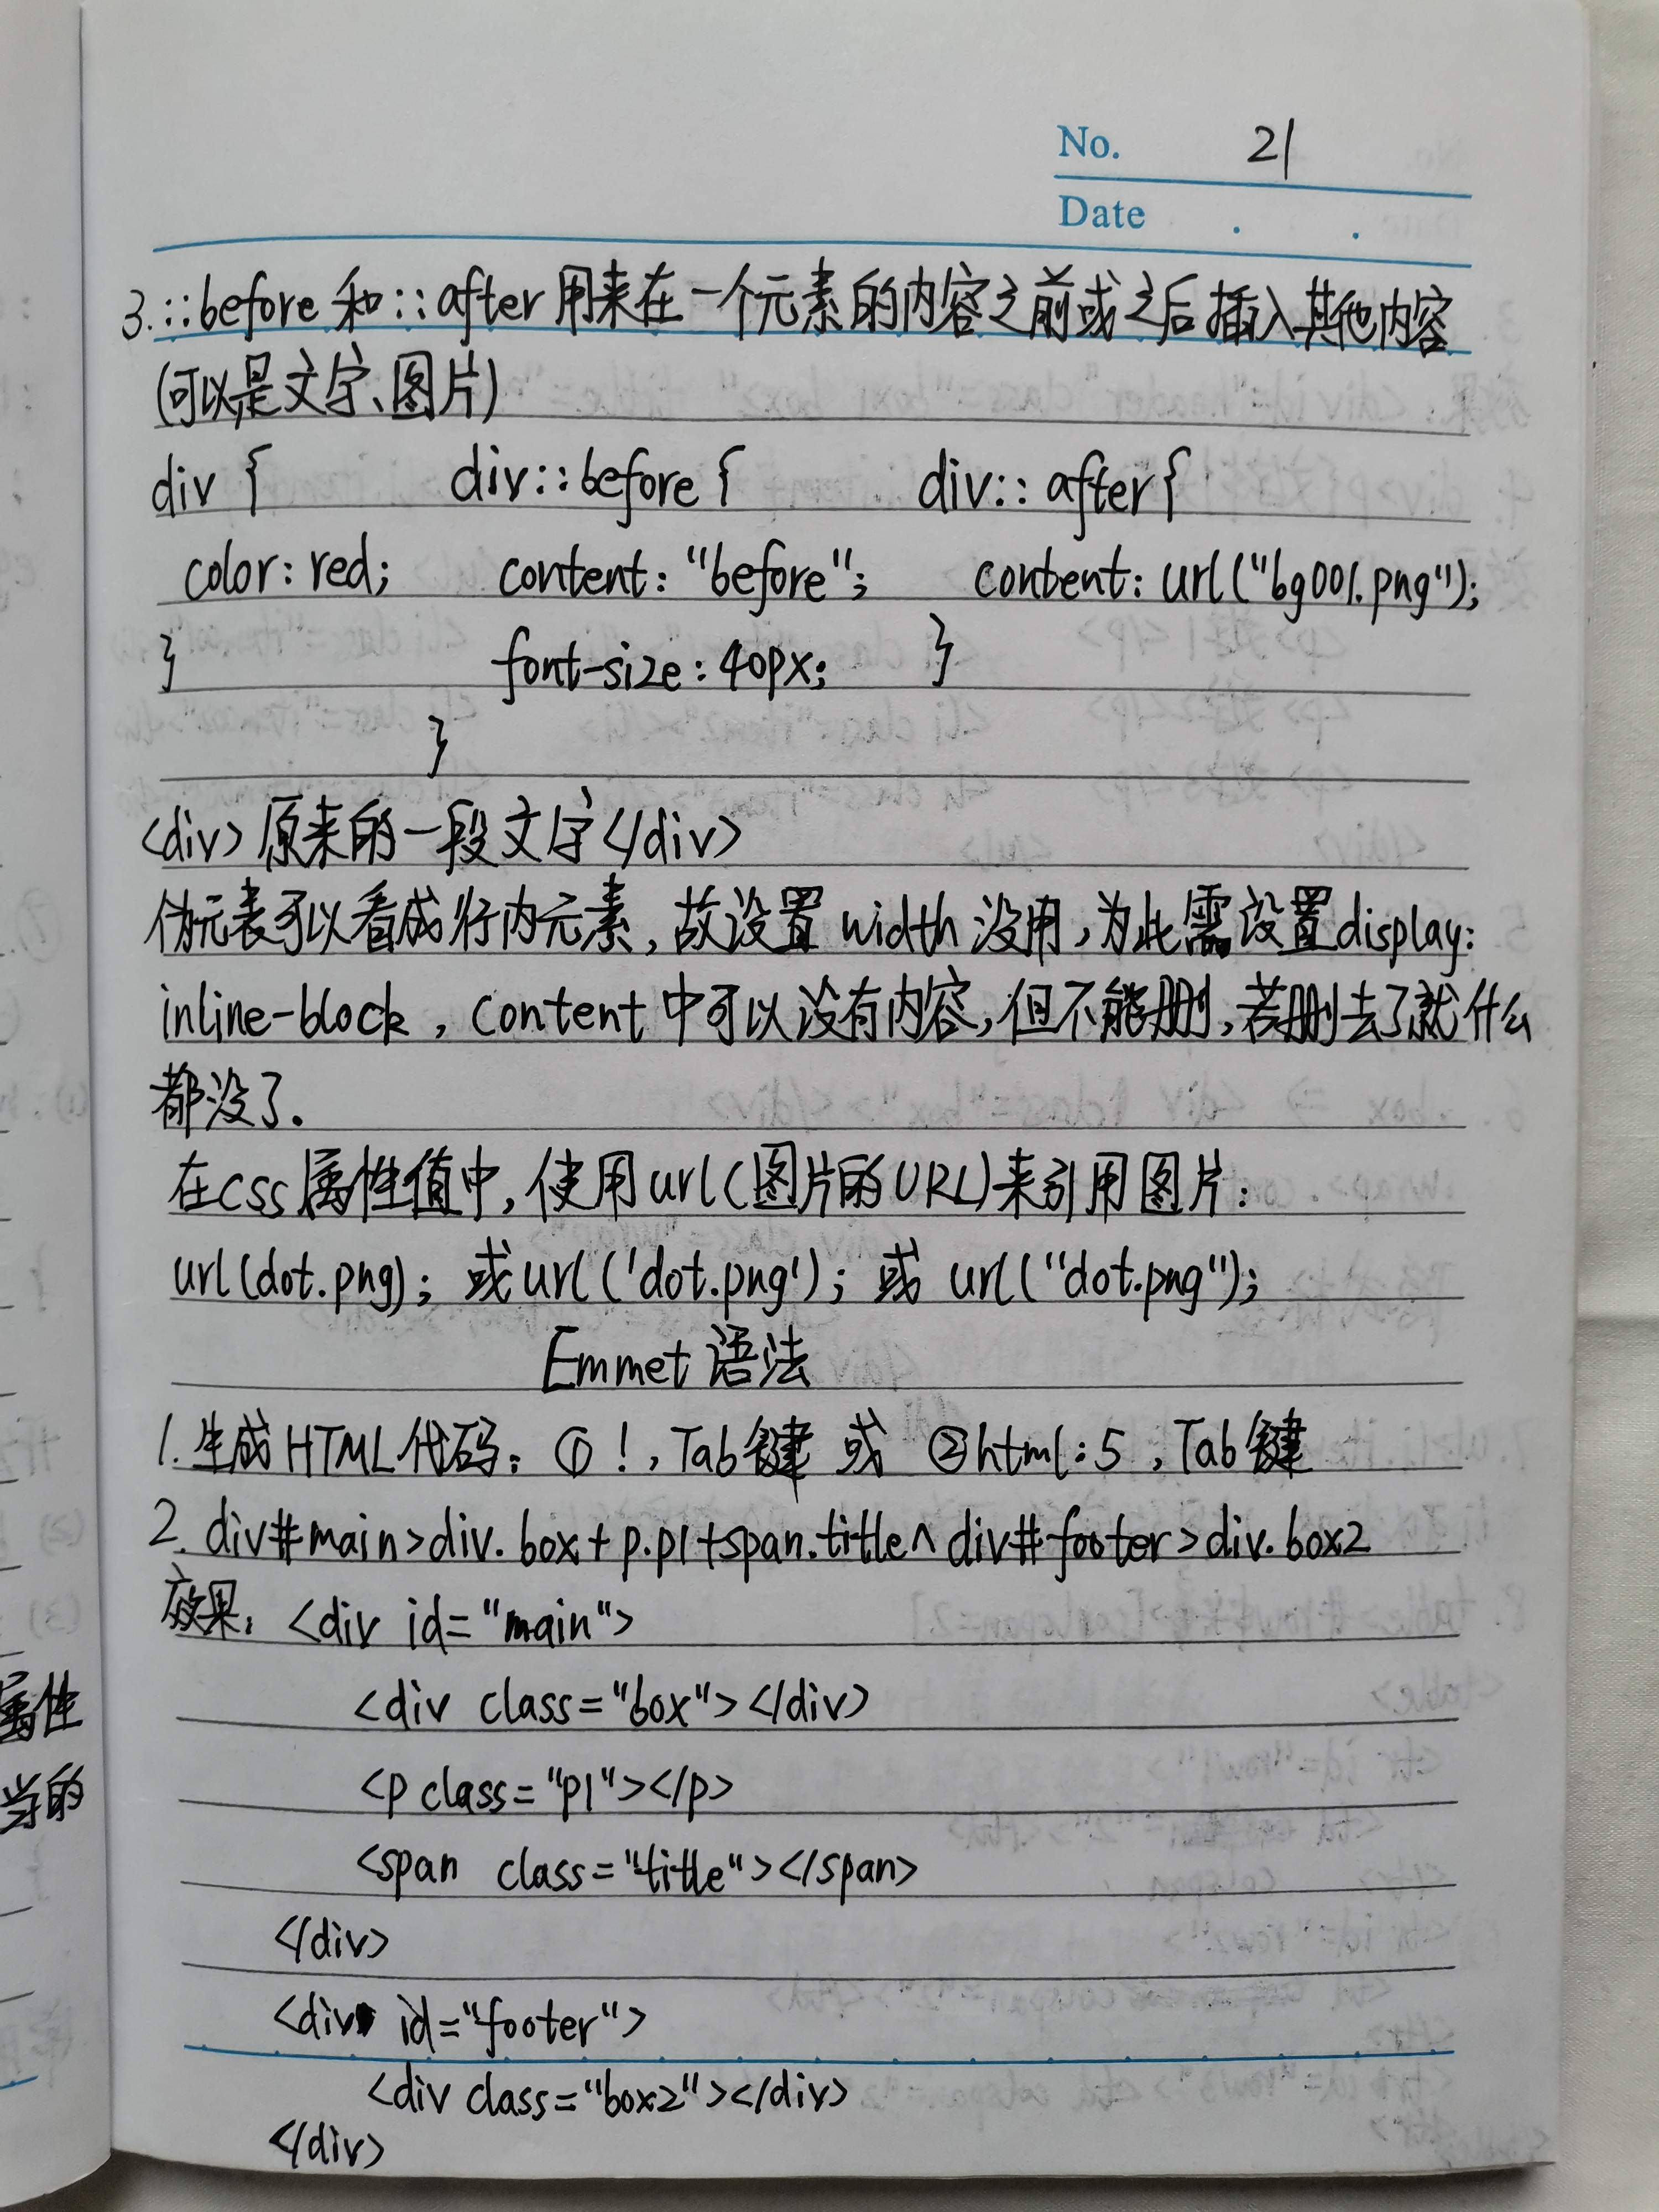 No. 21
Date . .
3.::before 和::after 用来在一个元素的内容之前或之后插入其他内容
(可以是文字、图片)
div { div::before { div::after{
color: red; content: "before"; content: url("bg001.png");
} font-size: 40px; }
}
<div>原来的一段文字</div>
伪元表可以看成行内元素,故设置 width 没用,为此需设置display:
inline-block , content 中可以没有内容,但不能删,若删去了就什么
都没了.
在CSS属性值中,使用url(图片的URL)来引用图片:
url(dot.png); 或url('dot.png'); 或 url("dot.png");
Emmet 语法
1.生成HTML代码: ① ! , Tab键 或 ②html:5 , Tab键
2. div#main>div.box+p.p1+span.title^div#footer>div.box2
效果: <div id="main">
<div class="box"></div>
<p class="p1"></p>
<span class="title"></span>
</div>
属性
<div id="footer">
当的
<div class="box2"></div>
</div>